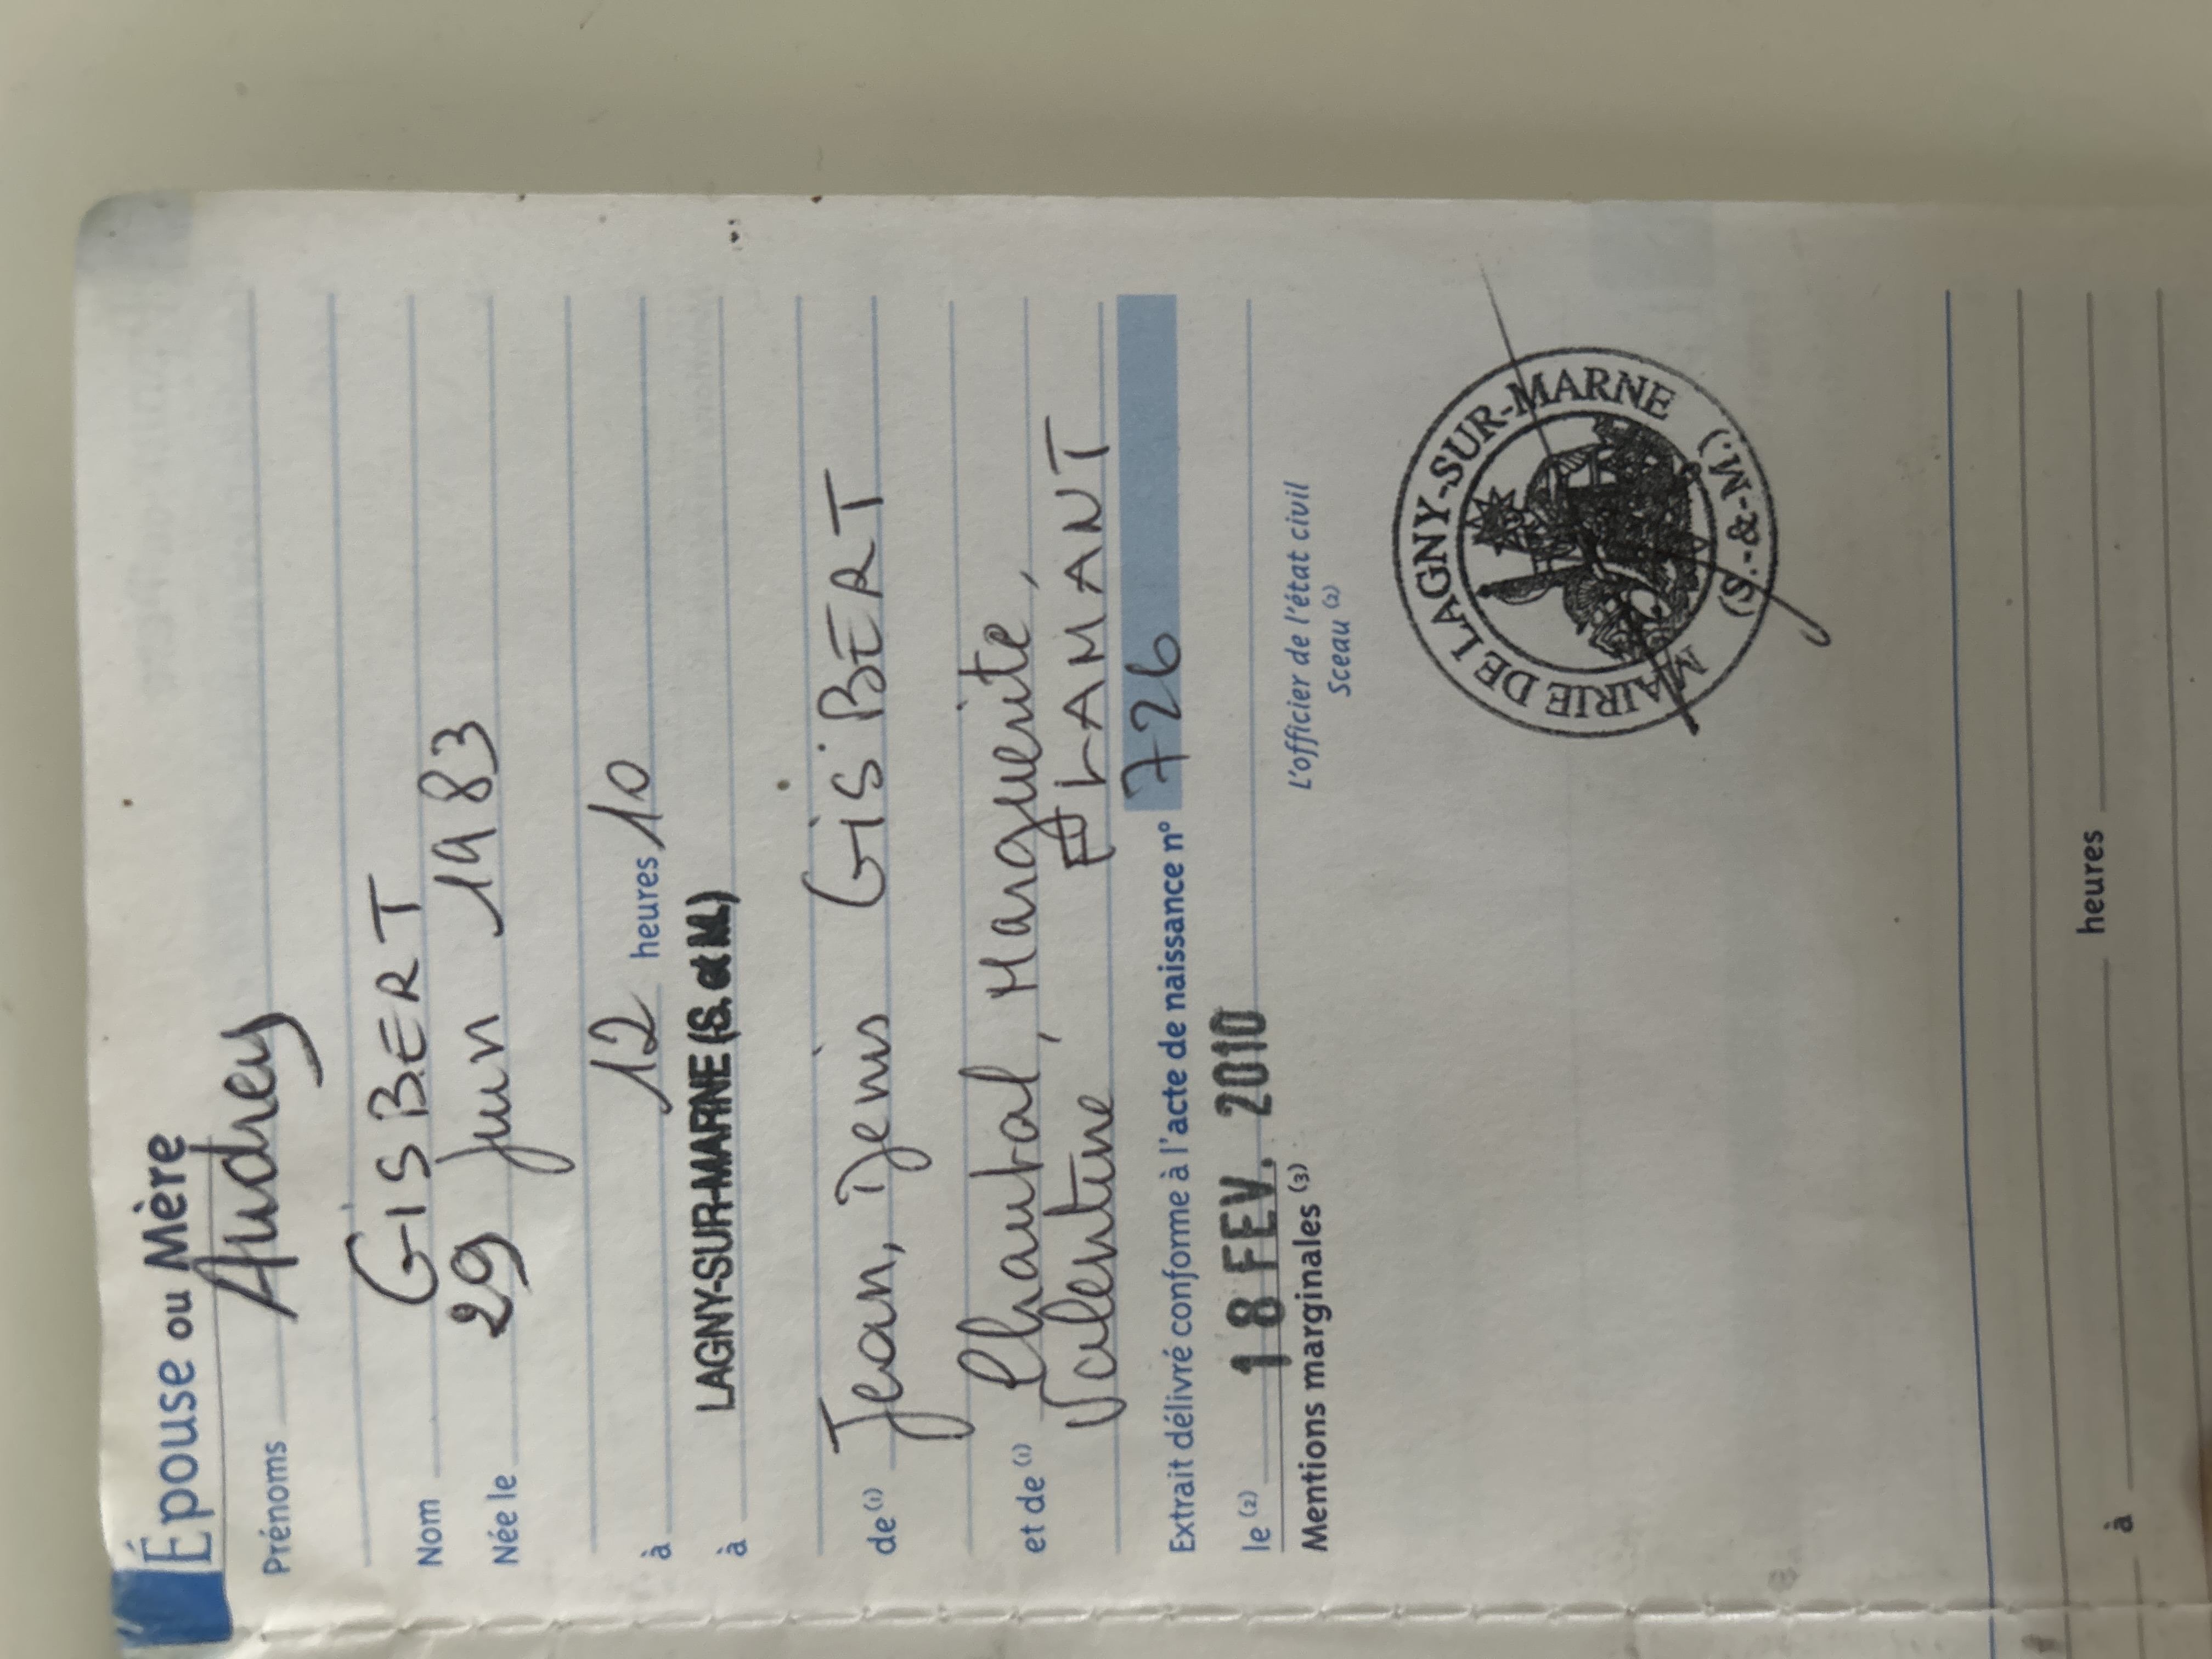 Épouse ou Mère
Prénoms Audrey
Nom GISBERT
Née le 29 juin 1983
à 12 heures 10
à LAGNY-SUR-MARNE (S. et M.)
de (1) Jean, Denis GISBERT
et de (1) Chantal, Marguerite,
Valentine FLAMANT
Extrait délivré conforme à l'acte de naissance n° 726
le (2) 18 FEV. 2010
Mentions marginales (3)
L'officier de l'état civil
Sceau (2)
MAIRIE DE LAGNY-SUR-MARNE (S.-&-M.)
à heures